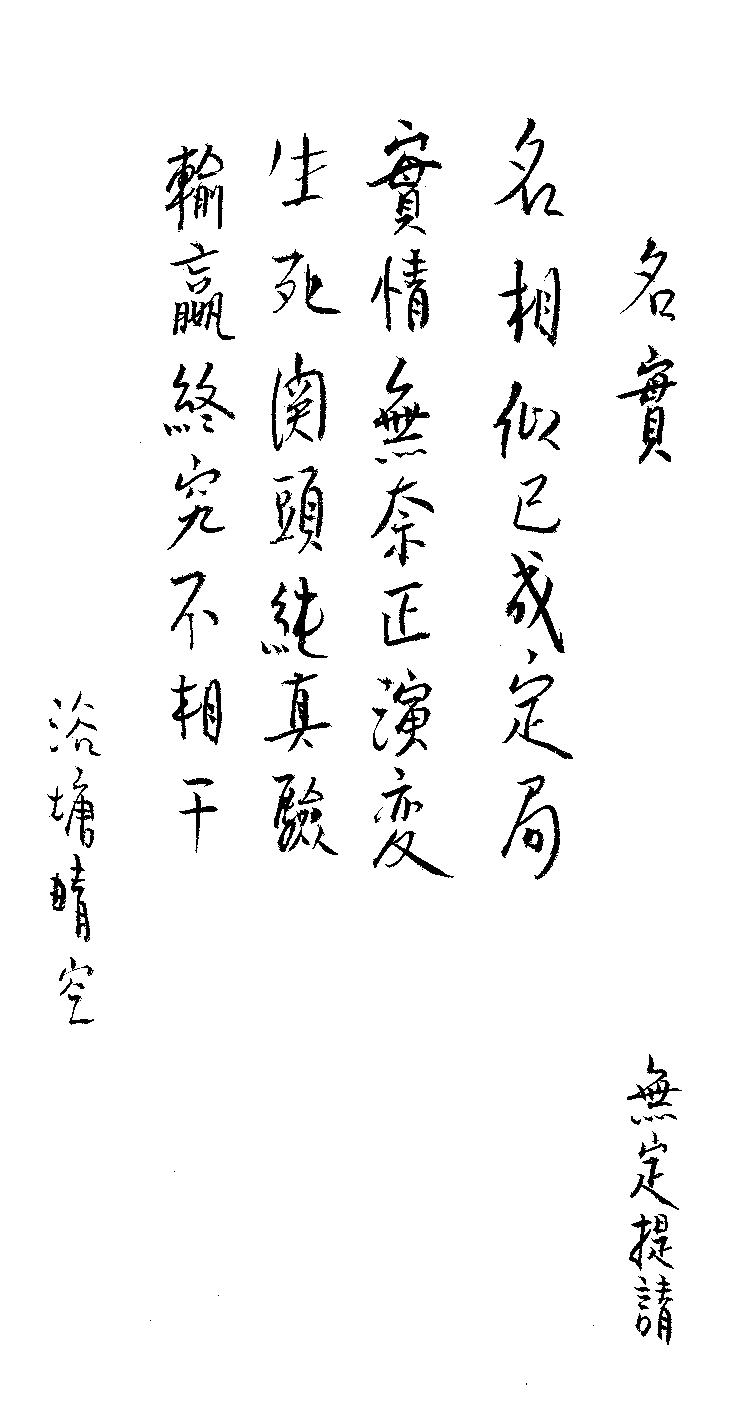 名實
無定提請
名相似已成定局
實情無奈正演変
生死関頭純真驗
輸贏終究不相干
浴塘晴空